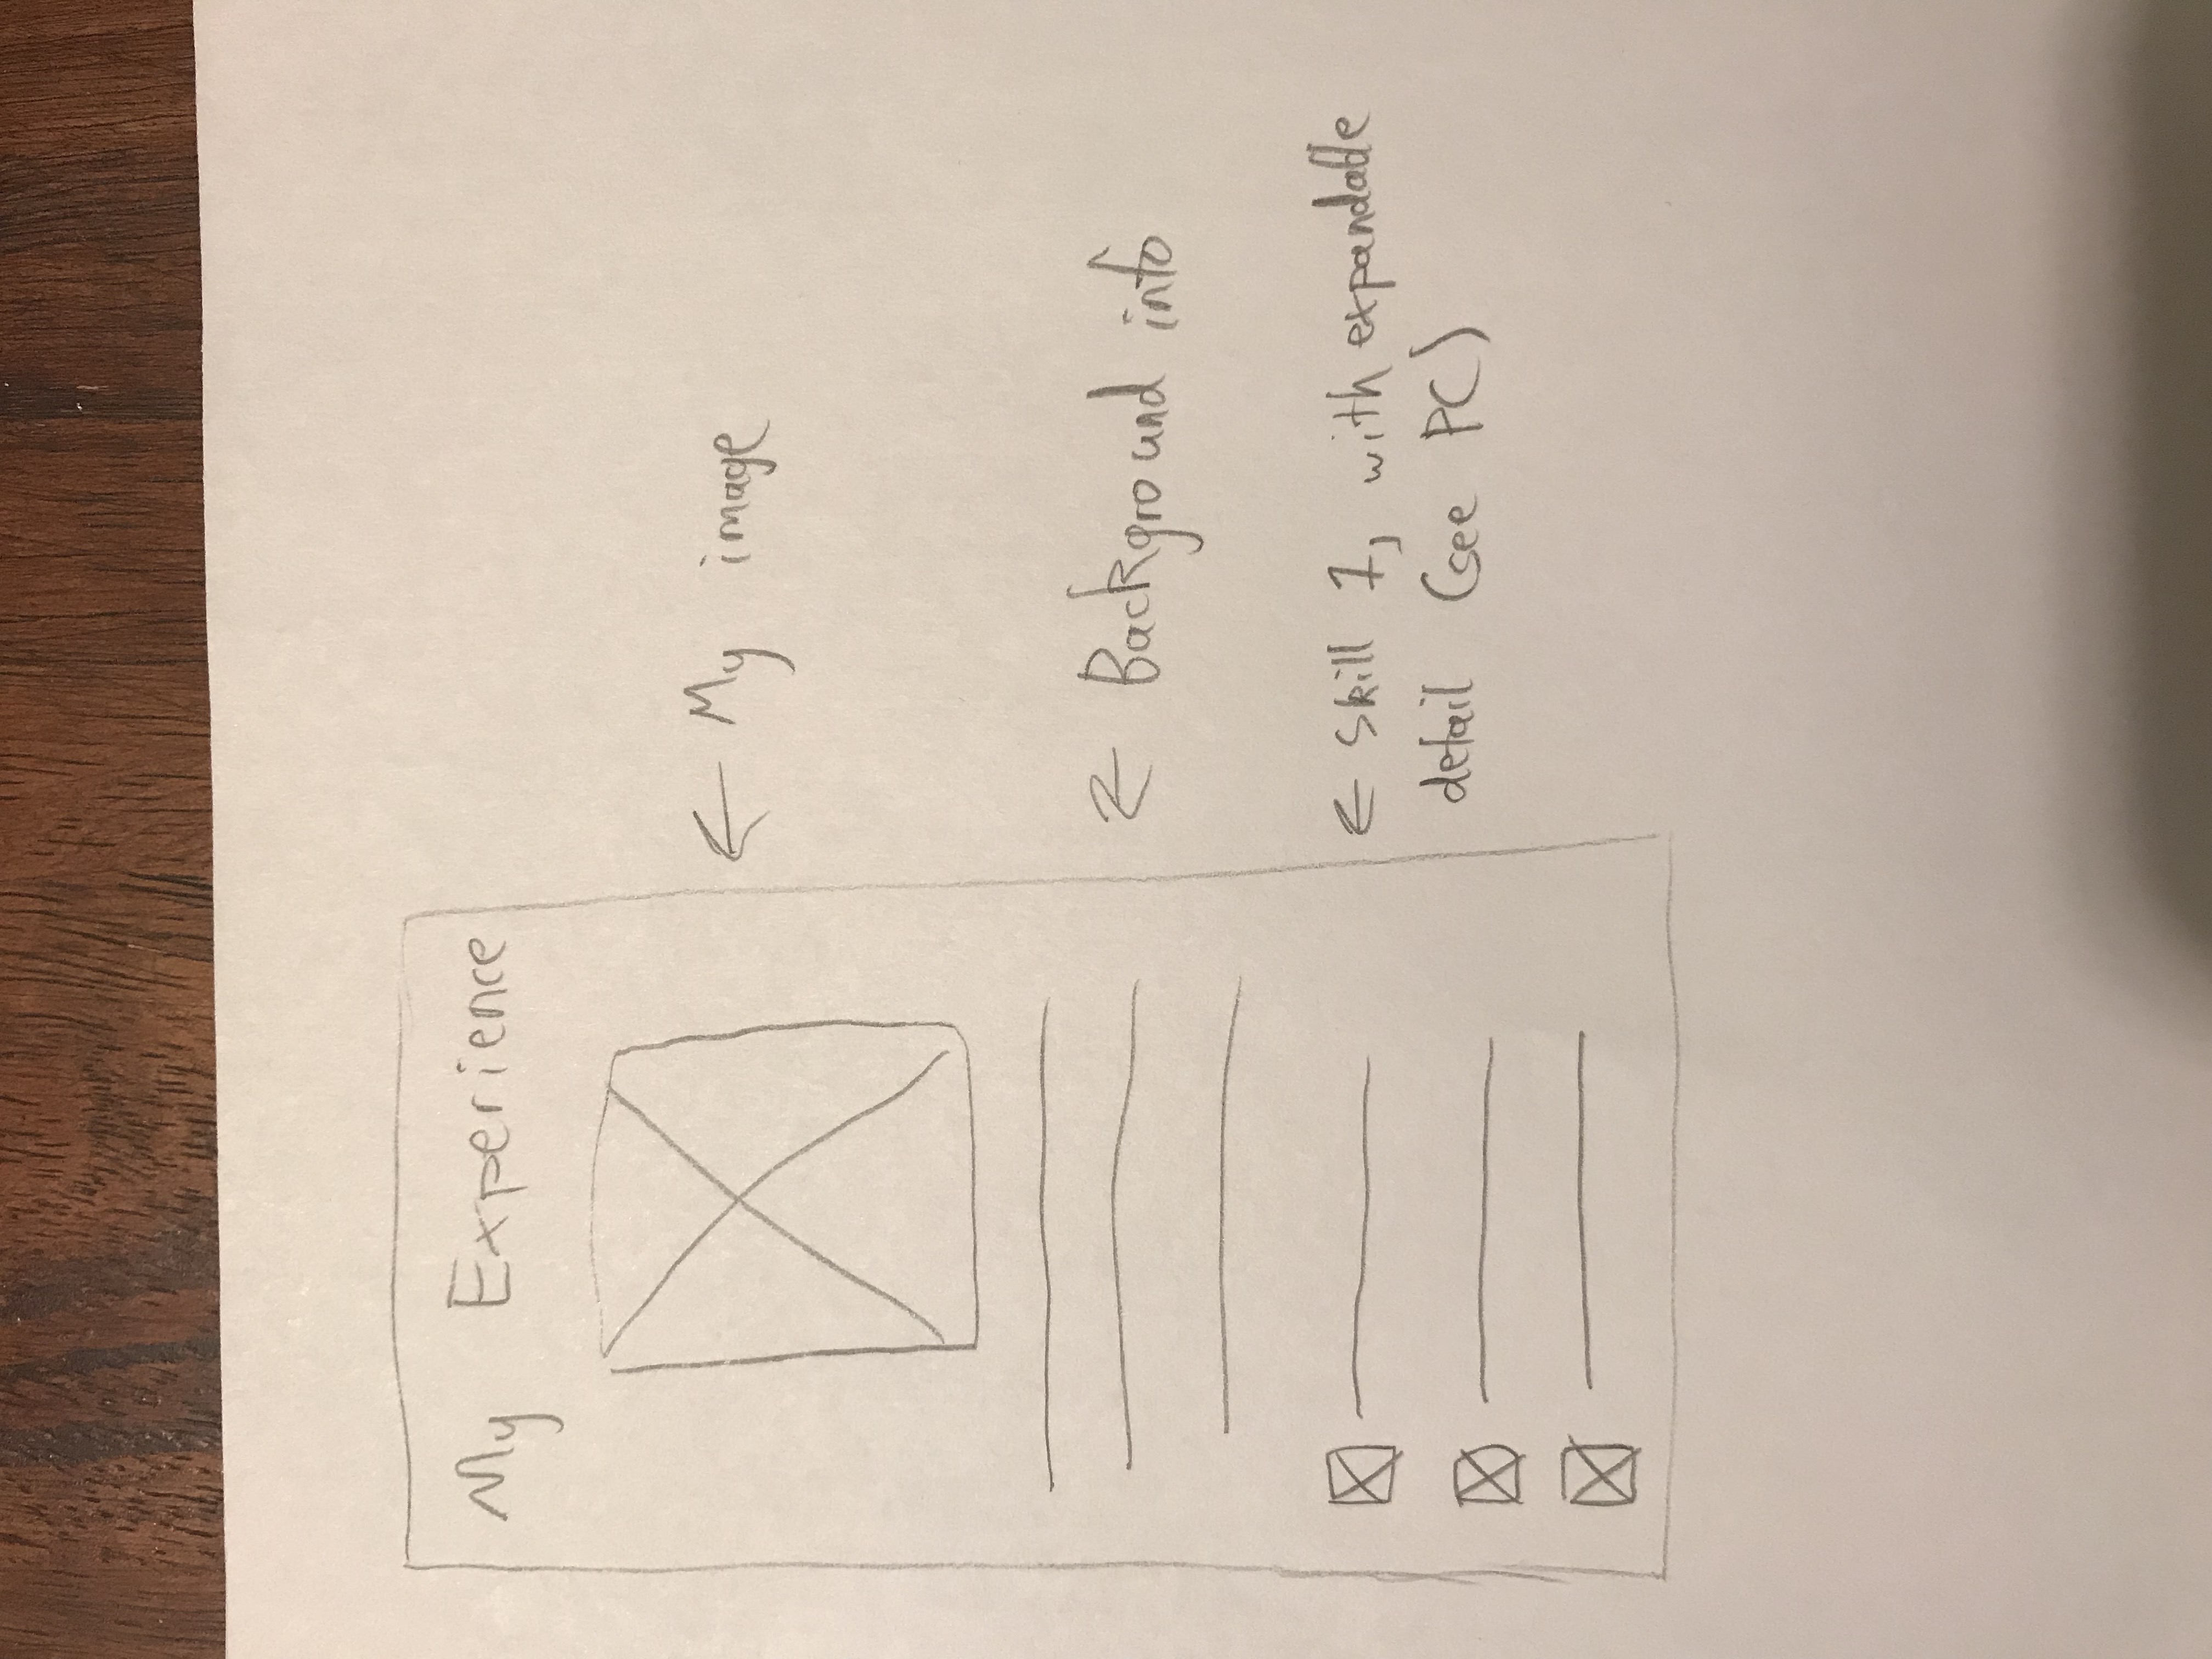 My Experience
My image
Background info
Skill 1, with expandable
detail (see PC)